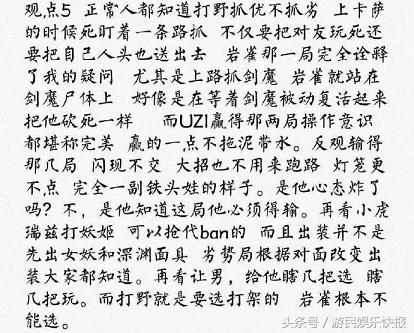 观点5 正常人都知道打野抓优不抓劣 上卡萨
的时候死盯着一条路抓 不仅要把对友玩死还
要把自己人头也送出去 岩雀那一局完全诠释
了我的疑问 尤其是上路抓剑魔 岩雀就站在
剑魔尸体上 好像是在等着剑魔被动复活起来
把他砍死一样 而UZI赢得那两局操作意识
都堪称完美 赢的一点不拖泥带水。反观输得
那几局 闪现不交 大招也不用来跑路 灯笼更
不点 完全一副铁头娃的样子。是他心态炸了
吗？不，是他知道这局他必须得输。再看小虎
瑞兹打妖姬 可以抢代ban的 而且出装并不是
先出女妖和深渊面具 劣势局根据对面改变出
装大家都知道。再看让男，给他瞎几把选 瞎
几把玩。而打野就是要选打架的 岩雀根本不
能选。
头条号/游民娱乐快报